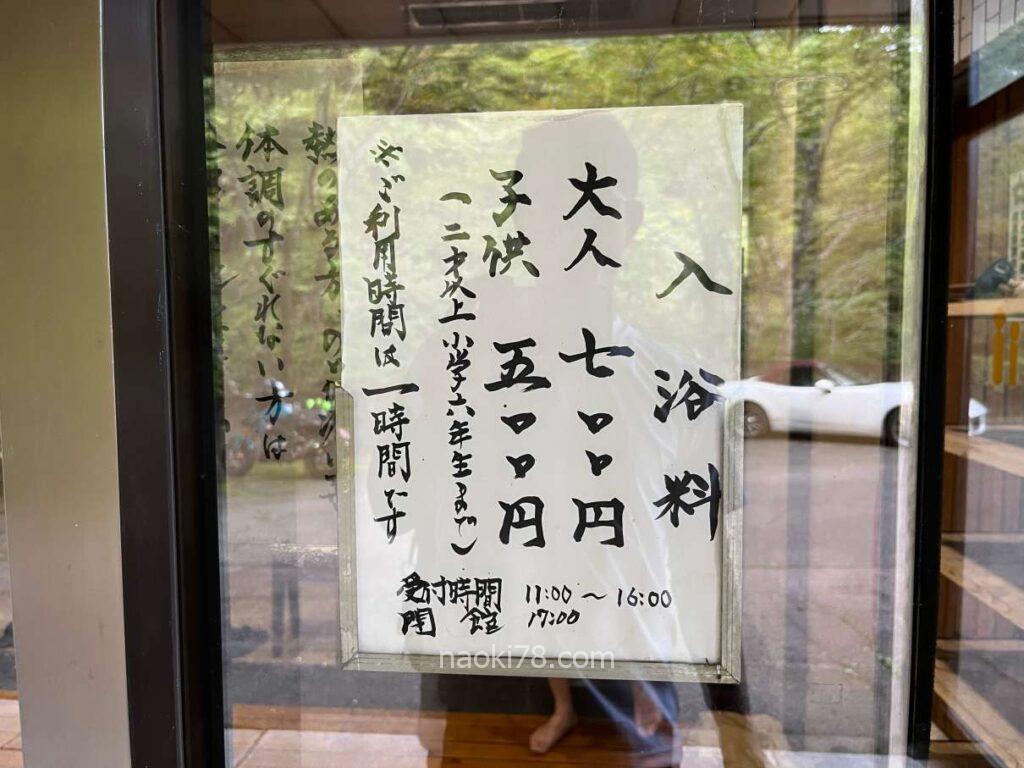 入浴料
大人 七〇〇円
子供 五〇〇円
(二才以上小学六年生まで)
※ご利用時間は一時間です
受付時間 11:00～16:00
閉館 17:00
熱のある方
体調のすぐれない方は
naoki78.com